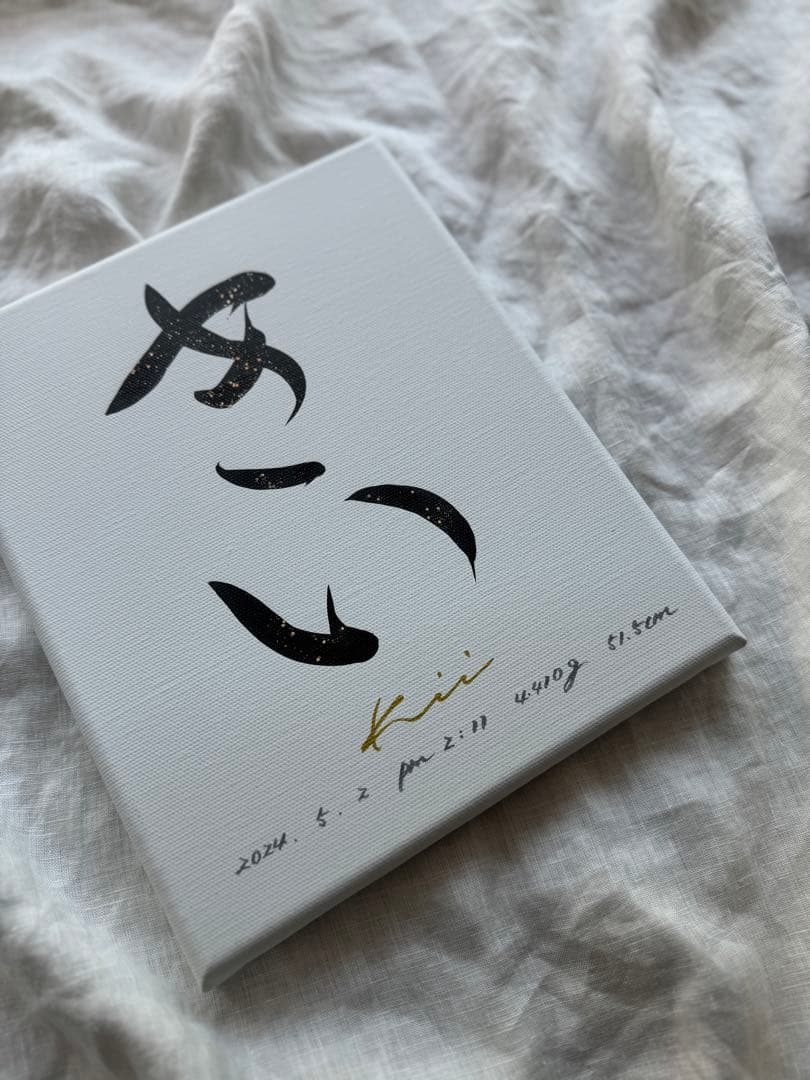 きい
Kii
2024. 5. 2 pm 2:11 4.410g 51.5cm